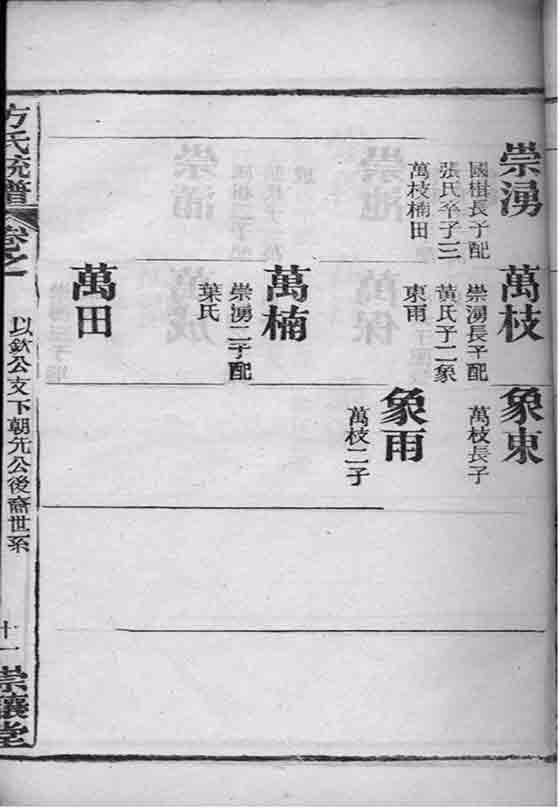 崇湧
國樹長子配
張氏卒子三
萬枝楠田
萬枝
崇湧長子配
黃氏子二象
東雨
萬楠
崇湧二子配
葉氏
萬田
象東
萬枝長子
象雨
萬枝二子
方氏統譜
卷之一
以欽公支下朝先公後裔世系
十一
崇讓堂